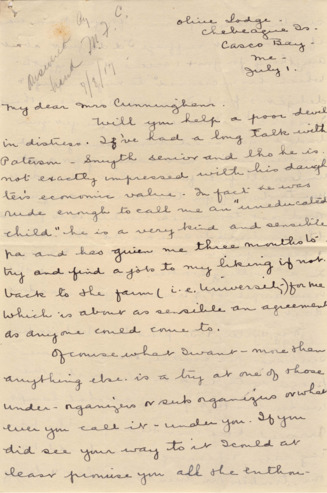 Olive Lodge.
Chebeague Is.
Casco Bay.
Me.
July 1.
by
hand M. F. C.
8/9/17
My dear Mrs Cunningham.
Will you help a poor devil
in distress. I've had a long talk with
Paterson-Smyth senior and tho he is
not exactly impressed with his daugh
ter's economic value. In fact he was
rude enough to call me an "uneducated
child" he is a very kind and sensible
pa and has given me three months to
try and find a job to my liking if not.
back to the farm (i.e. University) for me
which is about as sensible an agreement
as anyone could come to.
Of course what I want - more than
anything else is a try at one of those
under-organizers or sub organizers or what
ever you call it - under you. If you
did see your way to it I could at
least promise you all the enthou-